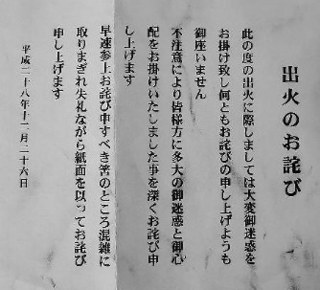 出火のお詫び
此の度の出火に際しましては大変御迷惑を
お掛け致し何ともお詫びの申し上げようも
御座いません
不注意により皆様方に多大の御迷惑と御心
配をお掛けいたしました事を深くお詫び申
し上げます
早速参上お詫び申すべき筈のところ混雑に
取りまぎれ失礼ながら紙面を以ってお詫び
申し上げます
平成二十八年十二月二十六日